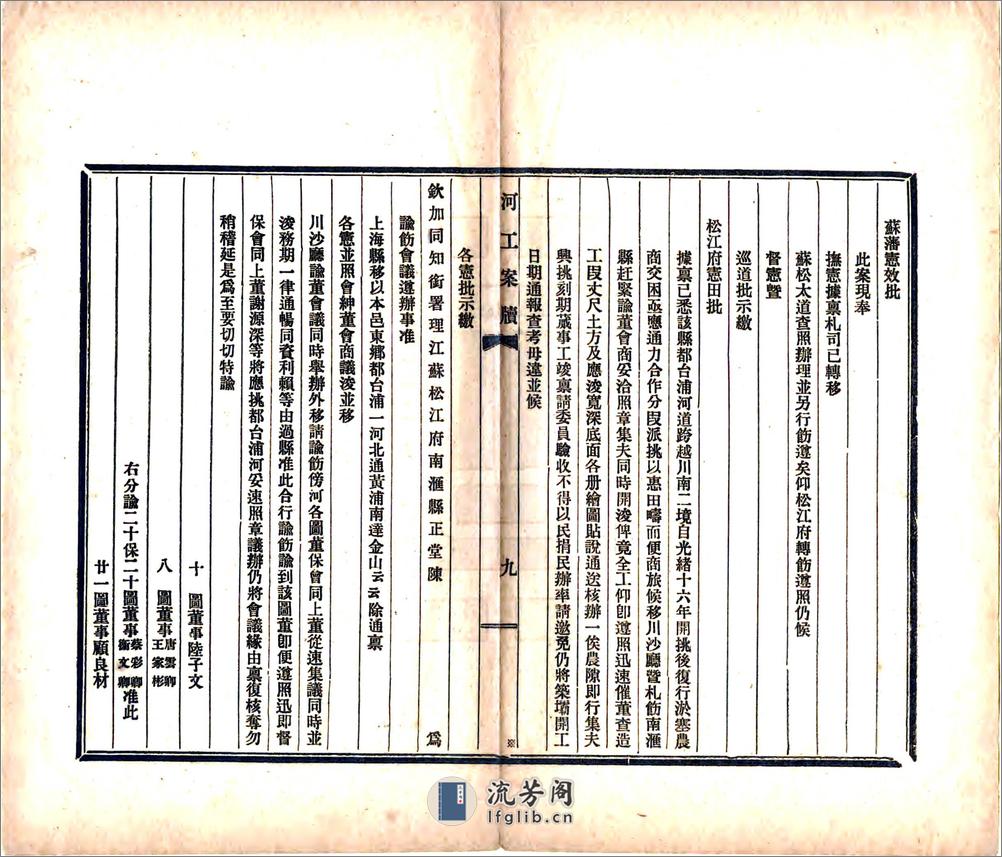 蘇藩憲效批
此案現奉
撫憲據稟札司已轉移
蘇松太道查照辦理並另行飭遵矣仰松江府轉飭遵照仍候
督憲暨
巡道批示繳
松江府憲田批
據稟已悉該縣都台浦河道跨越川南二境自光緒十六年開挑後復行淤塞農
商交困亟應通力合作分段派挑以惠田疇而便商旅候移川沙廳暨札飭南滙
縣赶緊諭董會商妥洽照章集夫同時開浚俾竟全工仰卽遵照迅速催董查造
工段丈尺土方及應浚寬深底面各册繪圖貼說通送核辦一俟農隙卽行集夫
興挑刻期蕆事工竣稟請委員驗收不得以民捐民辦率請邀免仍將築壩開工
日期通報查考毋違並候
河工案牘
九
※
各憲批示繳
欽加同知銜署理江蘇松江府南滙縣正堂陳 爲
諭飭會議遵辦事准
上海縣移以本邑東鄉都台浦一河北通黃浦南達金山云云除通稟
各憲並照會紳董會商議浚並移
川沙廳諭董會議同時舉辦外移請諭飭傍河各圖董保會同上董從速集議同時並
浚務期一律通暢同資利賴等由過縣准此合行諭飭諭到該圖董卽便遵照迅卽督
保會同上董謝源深等將應挑都台浦河妥速照章議辦仍將會議緣由稟復核奪勿
稍稽延是爲至要切切特諭
十 圖董事陸子文
八 圖董事唐雲卿王家彬
右分諭二十保二十圖董事蔡彩卿衞文卿准此
廿一圖董事顧良材
流芳阁
lfglib.cn